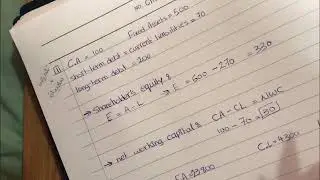 C.A = 100 Fixed Assets = 500
short-term debt = current liabilities = 70
long-term debt = 200
→ Shareholder's equity :
E = A - L → E = 600 - 270 = 330
→ net working capital : CA - CL = NWC
100 - 70 = 30
C.L = 4300